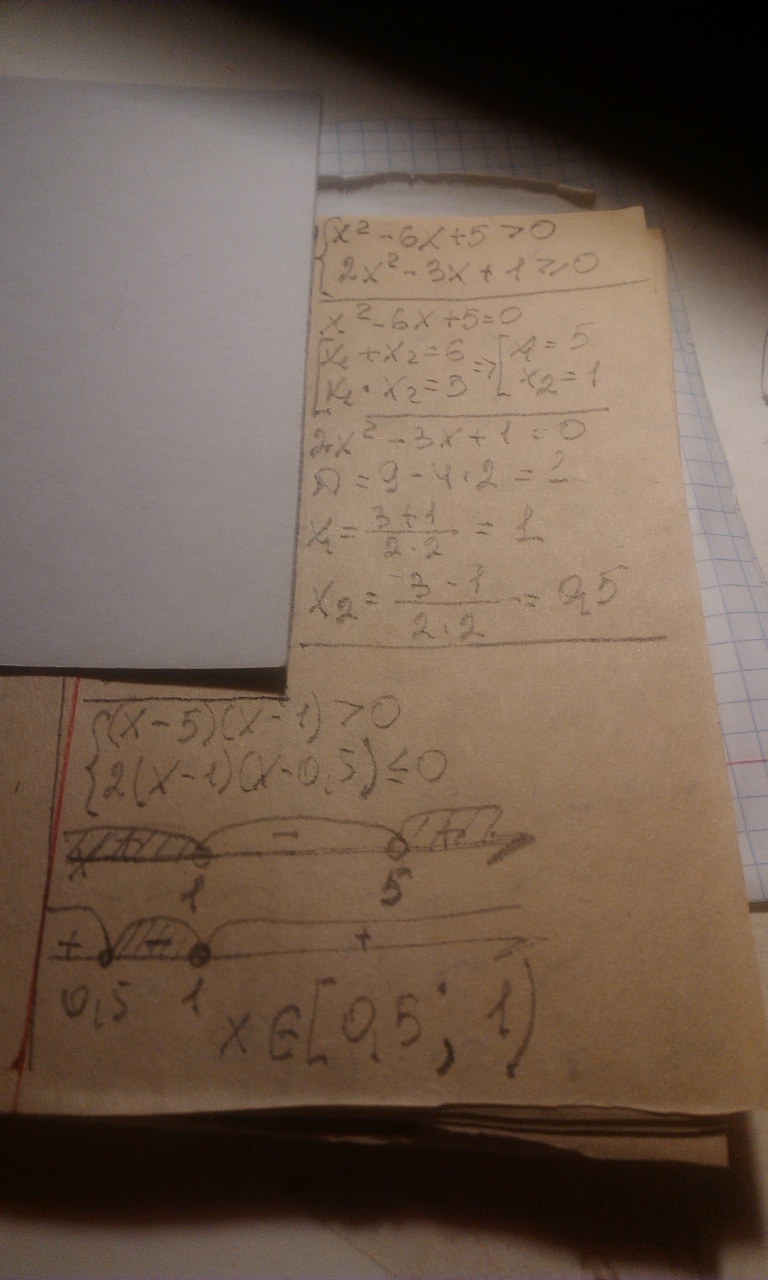 {x² - 6x + 5 > 0
2x² - 3x + 1 ≥ 0
x² - 6x + 5 = 0
[x₁ + x₂ = 6 => [x₁ = 5
x₁ · x₂ = 5 x₂ = 1
2x² - 3x + 1 = 0
D = 9 - 4·2 = 1
x₁ = (3+1)/(2·2) = 1
x₂ = (3-1)/(2·2) = 0,5
{(x-5)(x-1) > 0
2(x-1)(x-0,5) ≤ 0
+ - +
1 5
+ - +
0,5 1
x ∈ [0,5; 1)